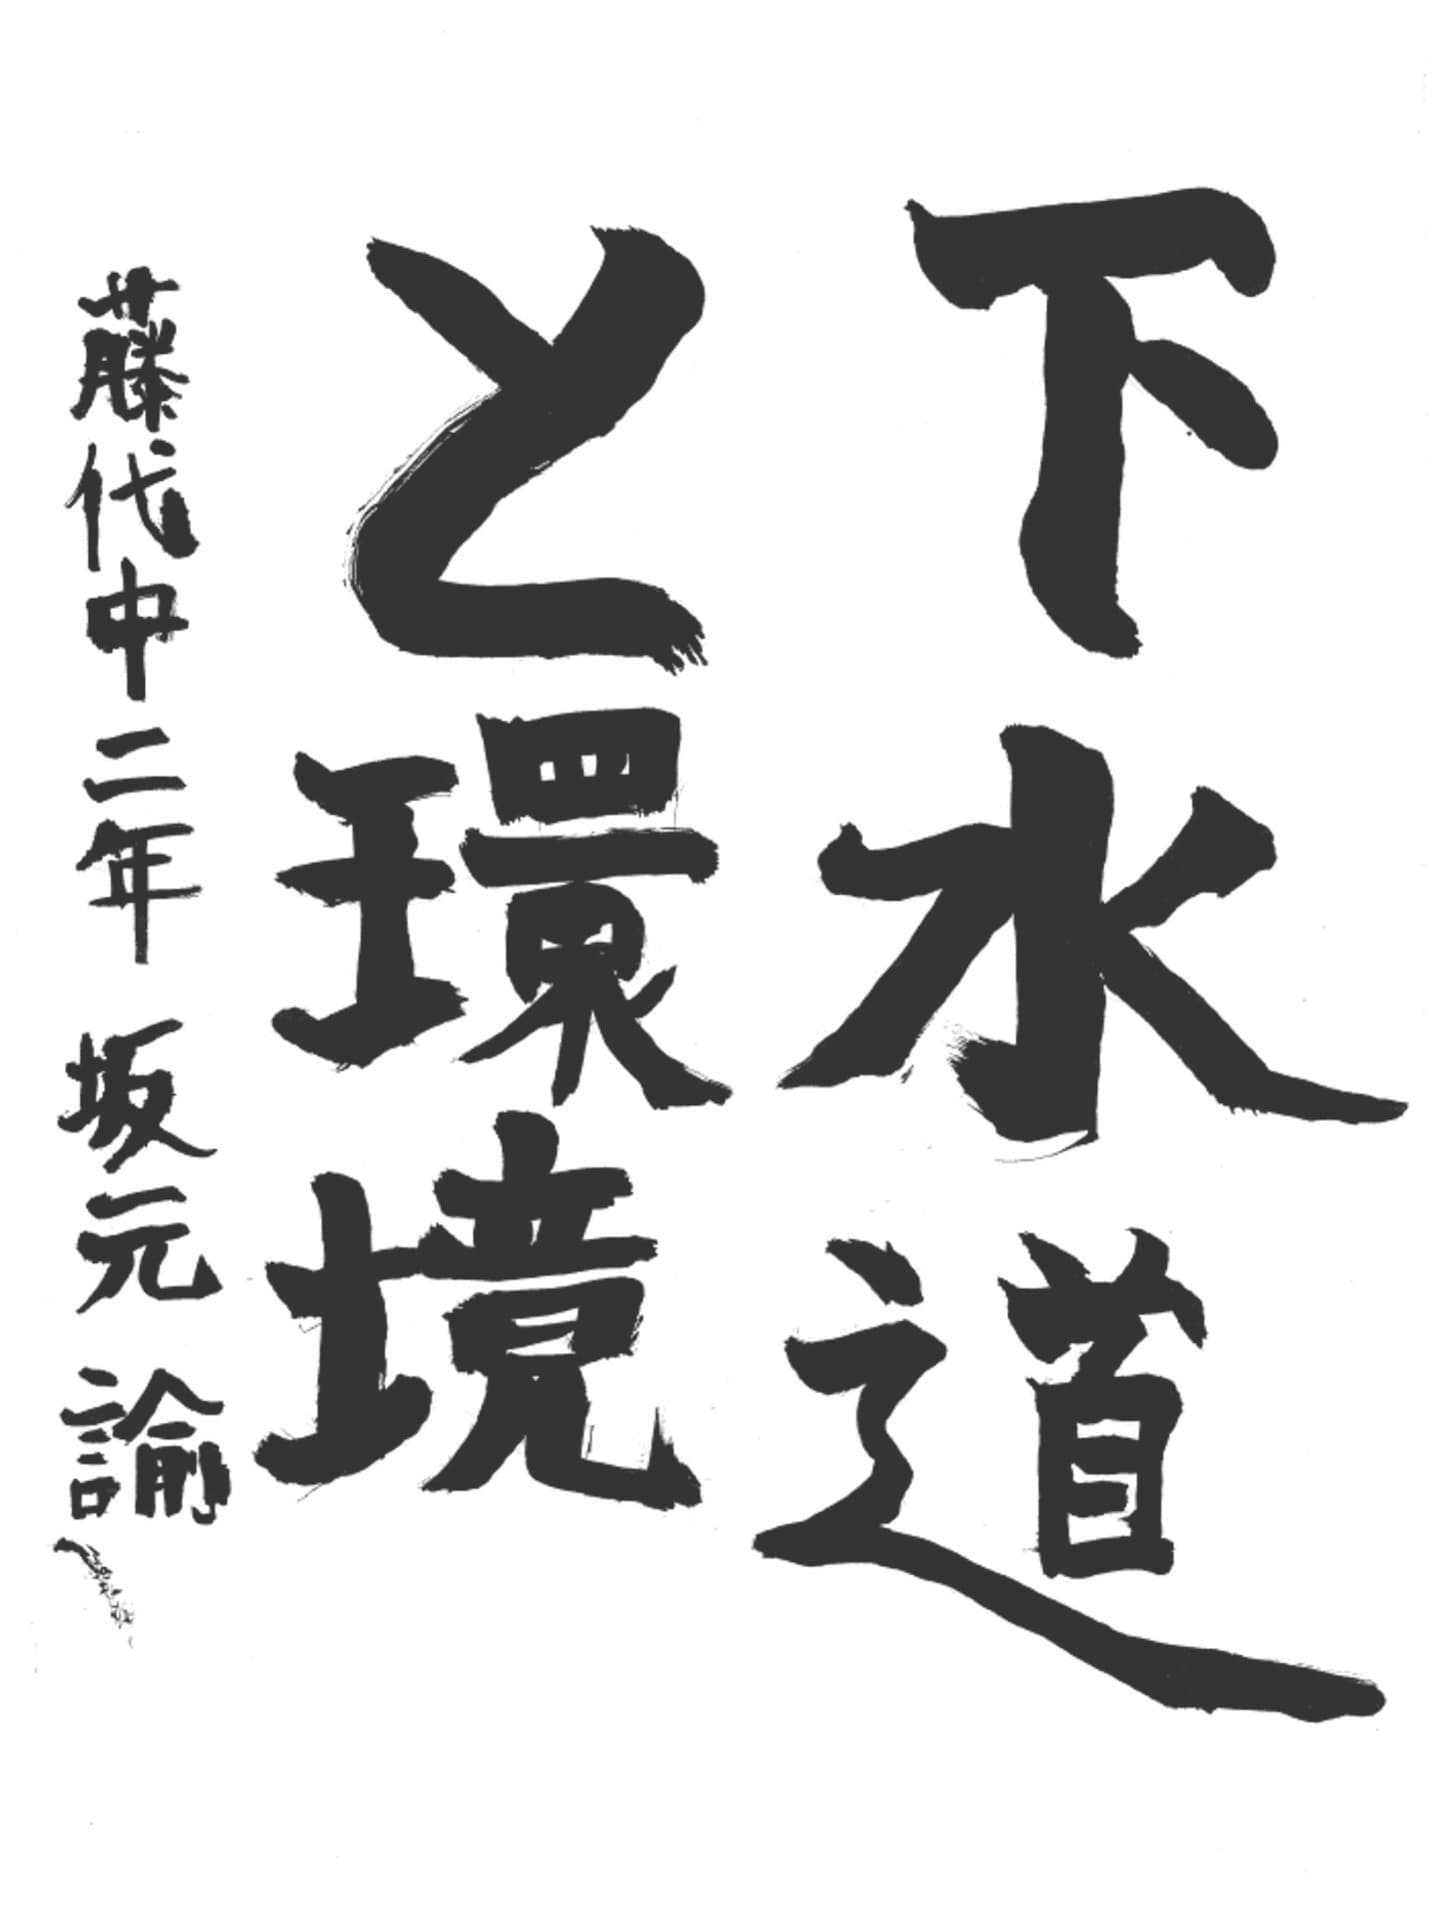 下水道
と環境
藤代中二年 坂元 諭